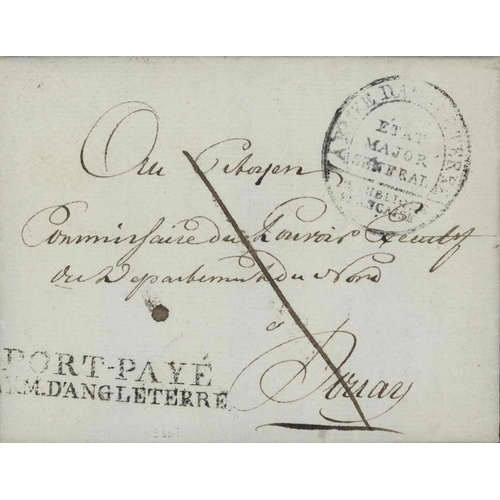 ARMÉE D'ANGLETERRE
ÉTAT
MAJOR
GÉNÉRAL
RÉPUBLIQUE
FRANÇAISE
Au Citoyen
Commissaire du Pouvoir Executif
du Departement du Nord
a
Douay
PORT-PAYÉ
ARM. D'ANGLETERRE